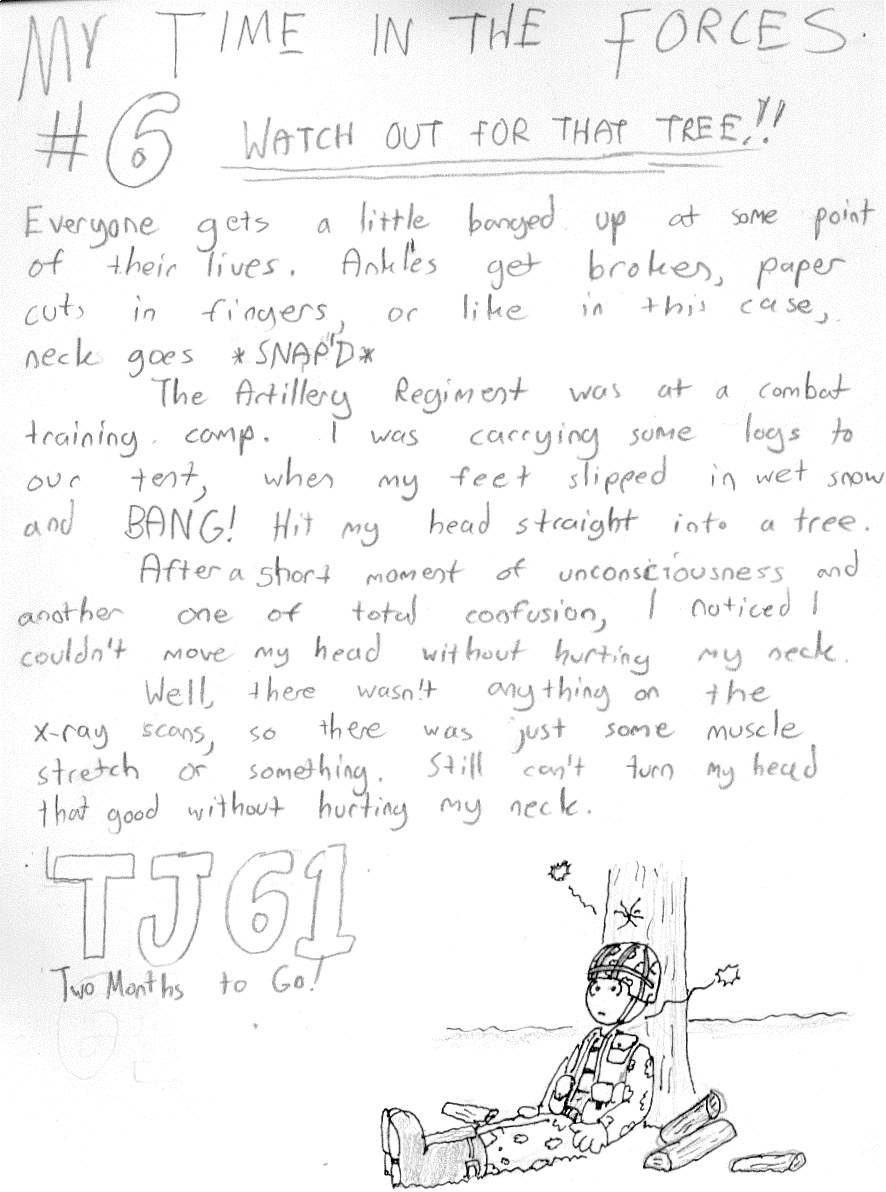 MY TIME IN THE FORCES.
#6 WATCH OUT FOR THAT TREE!!
Everyone gets a little banged up at some point
of their lives. Ankles get broken, paper
cuts in fingers, or like in this case,
neck goes *SNAP'D*
The Artillery Regiment was at a combat
training camp. I was carrying some logs to
our tent, when my feet slipped in wet snow
and BANG! Hit my head straight into a tree.
After a short moment of unconsciousness and
another one of total confusion, I noticed I
couldn't move my head without hurting my neck.
Well, there wasn't anything on the
x-ray scans, so there was just some muscle
stretch or something. Still can't turn my head
that good without hurting my neck.
TJ61
Two Months to Go!